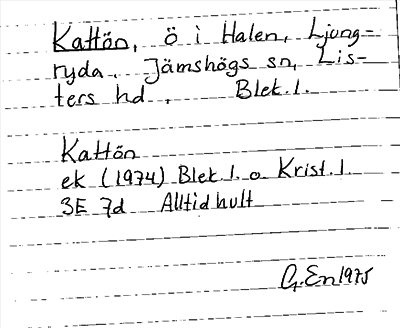 Kattön, ö i Halen, Ljung-
ryda. Jämshögs sn, Lis-
ters hd. Blek. l.
Kattön
ek (1974) Blek. l. o Krist. l.
3E 7d Alltidhult
G. En 1975